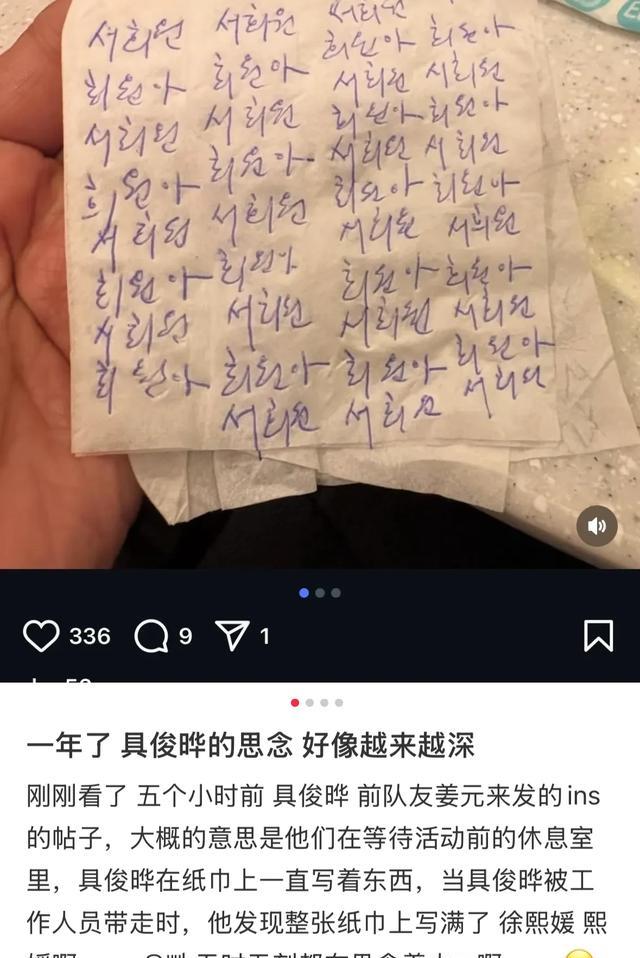 서희원
희원아
서희원
희원아
서희원
희원아
서희원
희원아
서희원
희원아
서희원
희원아
서희원
희원아
서희원
희원아
서희원
서희원
희원아
서희원
희원아
서희원
희원아
서희원
희원아
서희원
희원아
서희원
희원아
서희원
희원아
서희원
희원아
서희원
희원아
서희원
희원아
서희원
336 9 1
一年了 具俊晔的思念 好像越来越深
刚刚看了 五个小时前 具俊晔 前队友姜元来发的ins
的帖子，大概的意思是他们在等待活动前的休息室
里，具俊晔在纸巾上一直写着东西，当具俊晔被工
作人员带走时，他发现整张纸巾上写满了 徐熙媛 熙